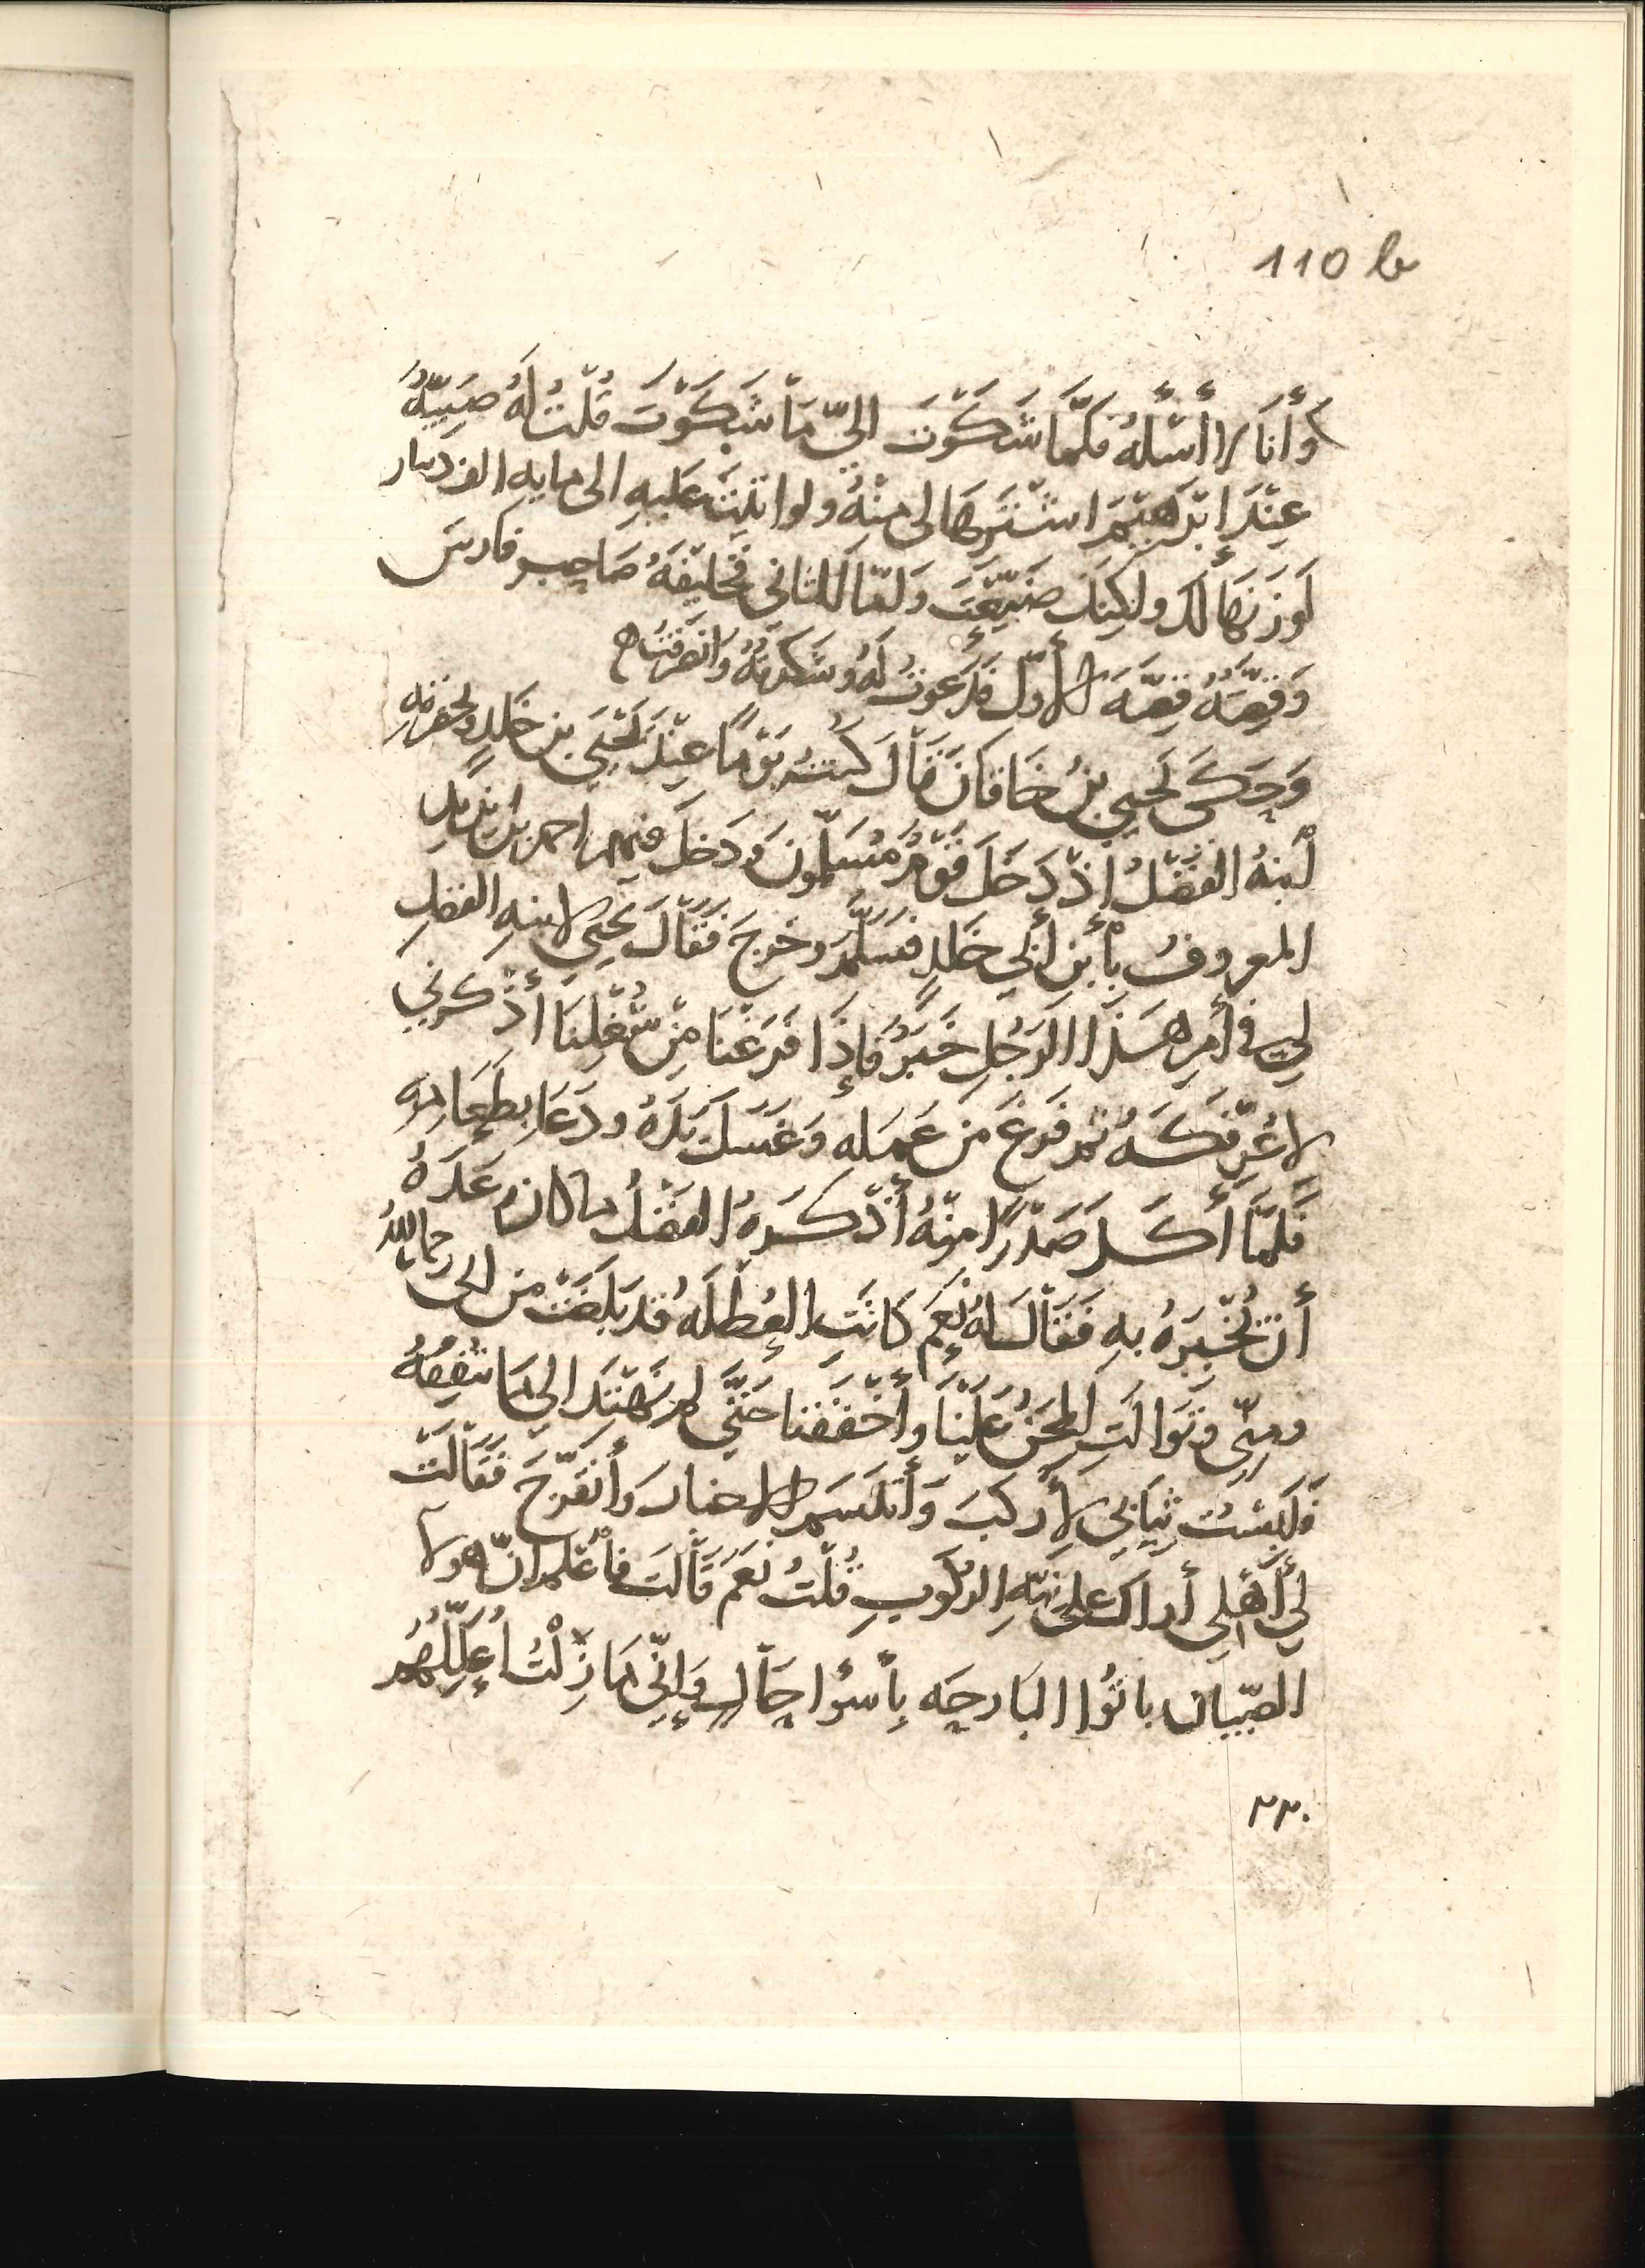 110 b
وَأَنَا لا أَسْأَلُهُ فكلَّمَا شَكَوْتَ اليَّ مَا شَكَوْتَ قُلْتُ لَهُ ضَيْعَةٌ
عِنْدَ إِبْرَهِيْمَ اشْتَرِهَا لِى مِنْهُ ولو اتيت عَلَيهِ الى مايه الف دينار
لَوَزَنَهَا لكَ ولكِنكَ ضَيَّعْتَ وَلَقَا لَكَ الثانى فَخَلِيْفَةُ صَاحِب فارسَ
وَقِصَّتُهُ قِصَّةُ الأَوّل فدَعَوتُ لَهُ وشَكَرتُهُ وَانْصَرَفْتُ ه
وَحَكَى يَحْيَى بْنُ خَاقَانَ قَالَ كُنْتُ يَوْمًا عِنْدَ يَحْيَى بْنِ خَلِدٍ وبحضرته
اَبنهُ الفَضْلُ إذْ دَخَلَ قَوْمٌ مُسَلِّمُونَ وَدَخَلَ فيهم احمد بن يزيد
المعروفُ بأبْنِ أَبِي خَلدٍ فسَلَّمَ وخَرجَ فَقَالَ يحيى لابنهِ الفضلِ
لِي فى أَمرِ هَذَا الرَّجُلِ خَبَرٌ فَإِذَا فَرَغْنَا مِنْ شُغْلِنَا أَذْكِرْنِي
لأُعَرِّفَكَهُ ثم فَرغَ من عَمَلهِ وَغَسَلَ يَدَهُ ودَعَا بِطَعَامِهِ
فَلَمَّا أَكَلَ صَدْرًا مِنْهُ أَذْكَرَهُ الفَضْلُ ما كان وَعَدَهُ
أن يُخْبِرَهُ بهِ فَقَالَ لهُ نَعَم كَانَتِ العُطْلَةُ قد بَلَغَتْ من ابى رحمه اللهُ
ومِنّى وتَوَالَتِ المِحَنُ عَلَيْنَا وأَخْفَقْنا حَتَّى لم نَهْتَدِ الى مَا نُنْفِقُهُ
فَلَبِسْتُ ثِيَابِي لأَركبَ وَأَتَنَسَّمَ الأخبارَ وأَتَفَرَّجَ فَقَالَتْ
لِي أَهْلِي أراكَ على نيّةِ الركُوبِ قُلْتُ نَعَمْ قَالَتْ فَاعْلَم انّ هولا
الصِّبيان باتُوا البَارِحَه بِأَسْوَإ حَالٍ وَإنّى مَا زِلْتُ أُعَلِّلُهُم
٢٢٠